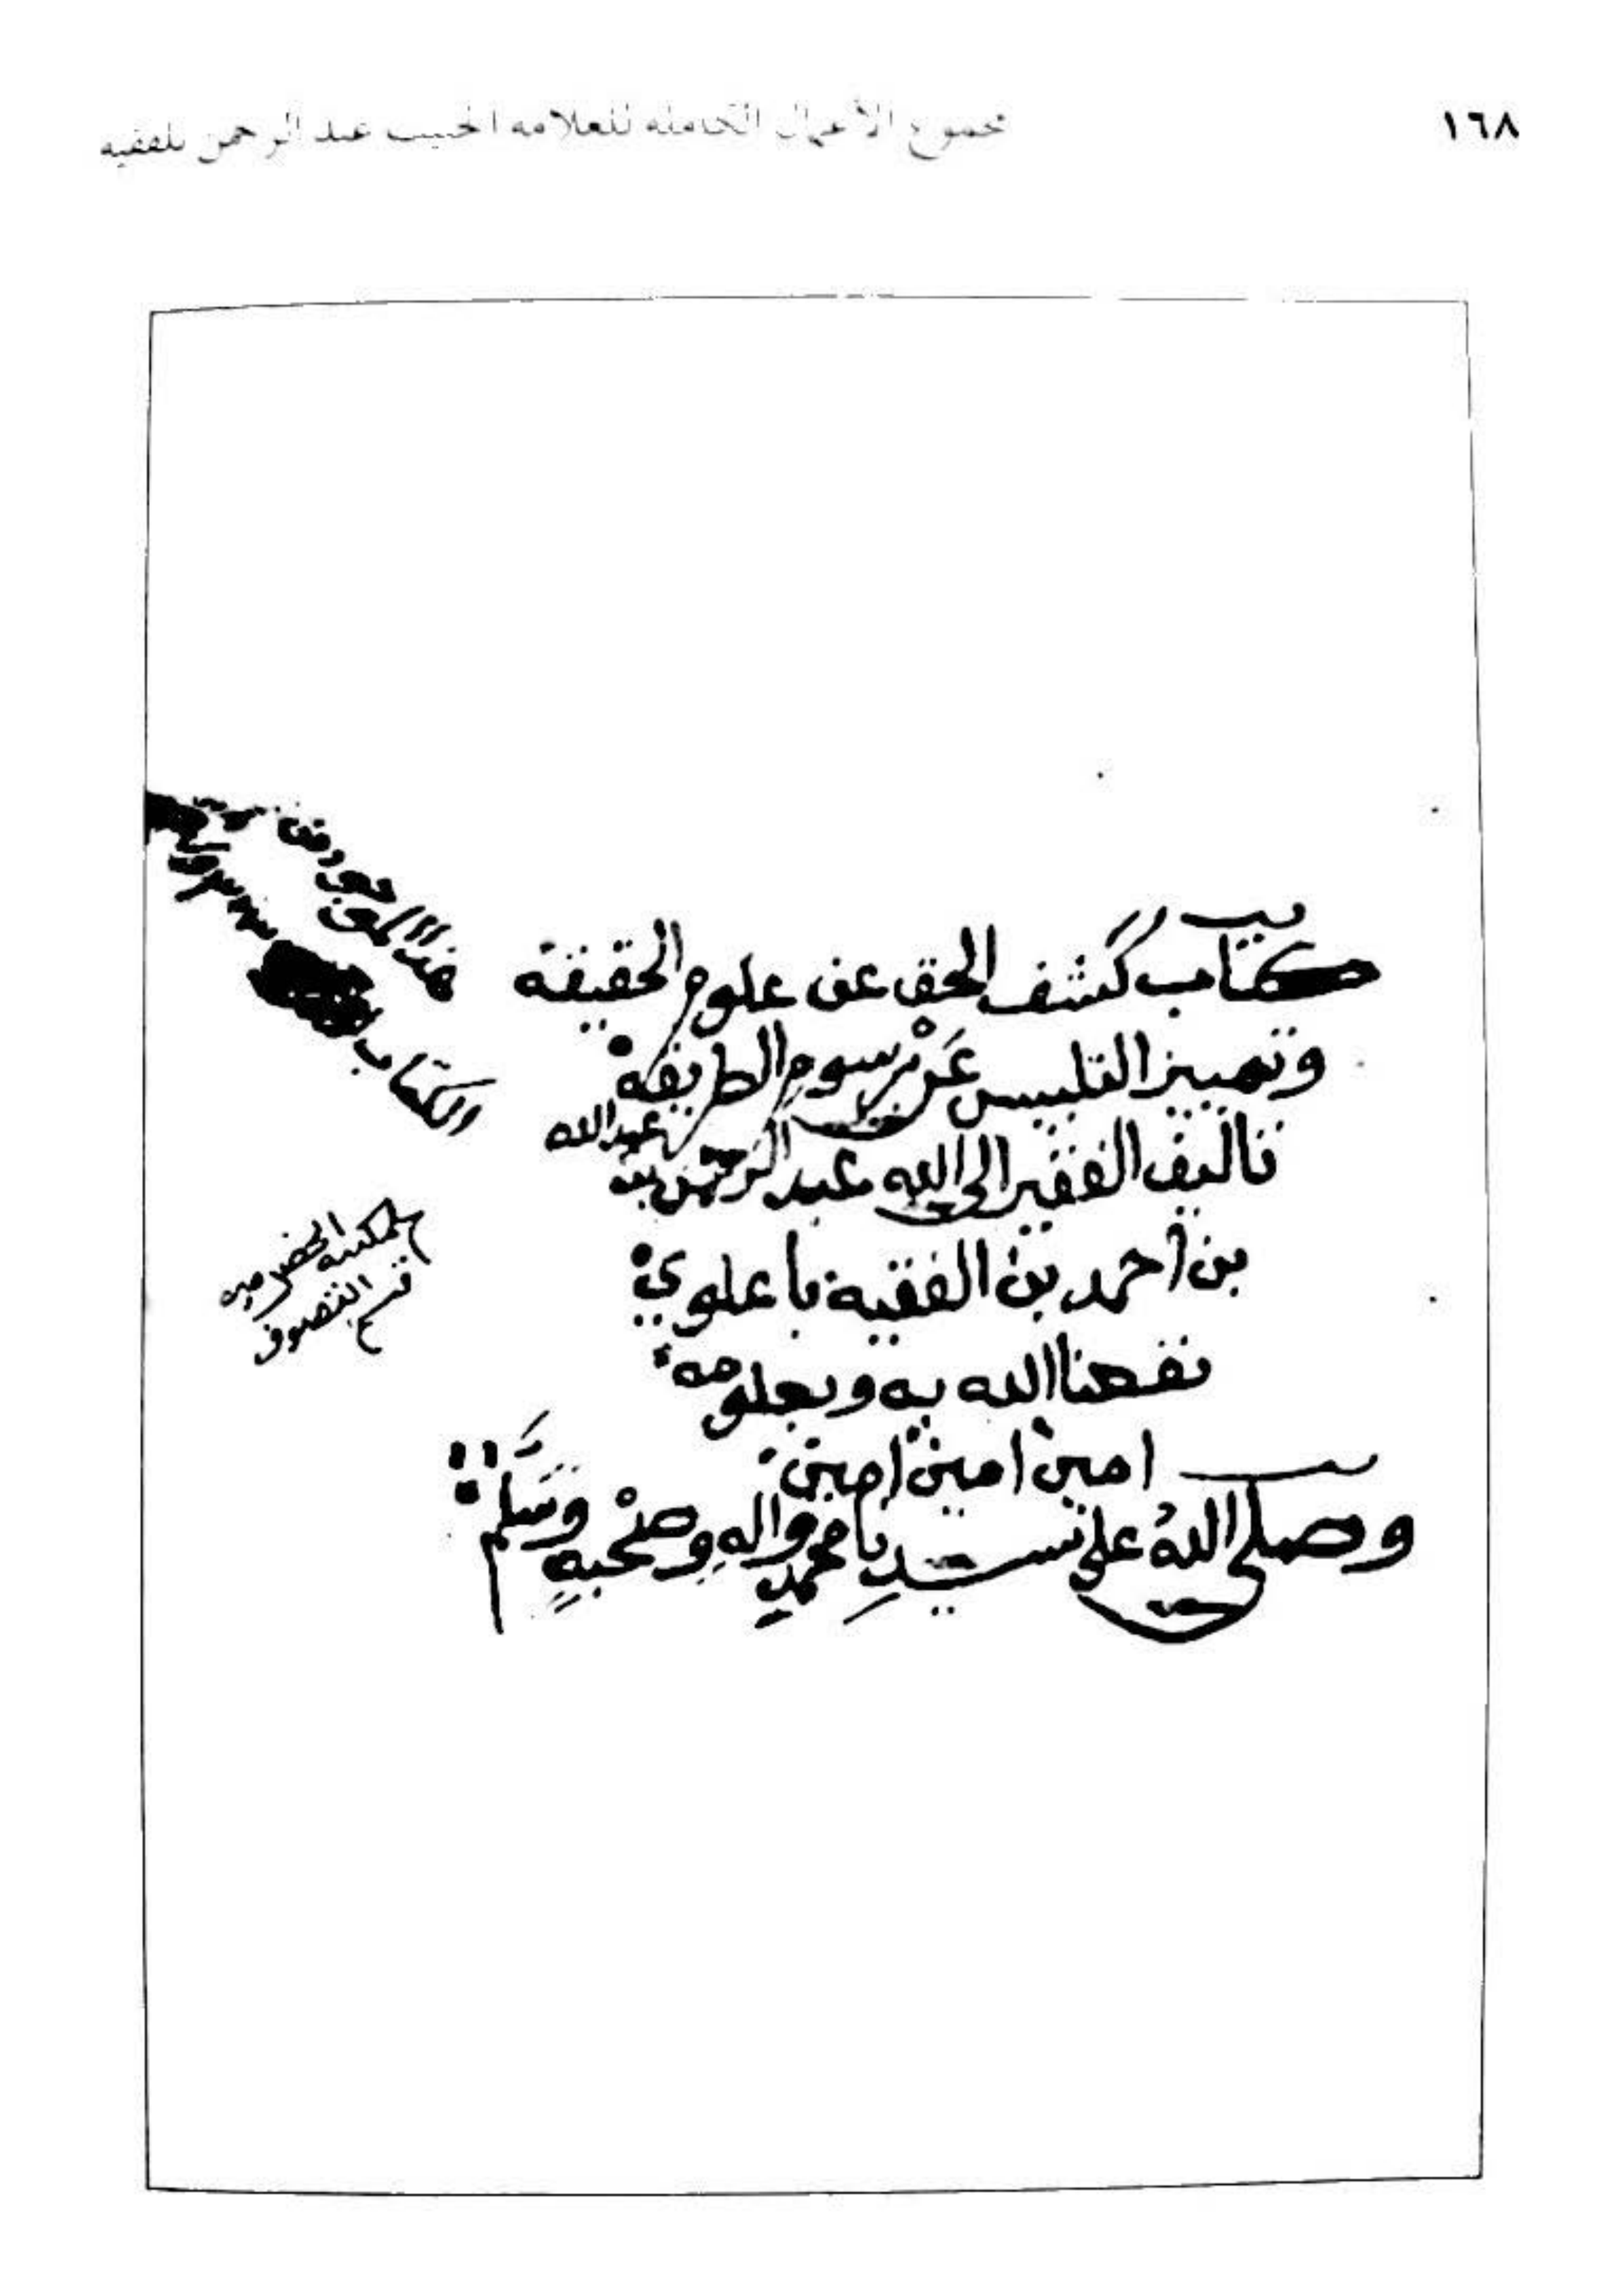 ١٦٨
مجموع الأعمال الكاملة للعلامة الحبيب عبد الرحمن بلفقيه
كتاب كشف الحق عن علوم الحقيقة
وتمييز التلبيس عَنْ رسوم الطريقة
تاليف الفقير الى الله عبد الرحمن بن عبد الله
بن أحمد بن الفقيه باعلوي
نفعنا الله به وبعلومه
امين امين امين
وصلى اللهُ على سيدِنا محمدٍ والهِ وصحْبهِ وسَلَّم
هذا
الكتاب
المكتبة الحضرمية
قسم التصوف